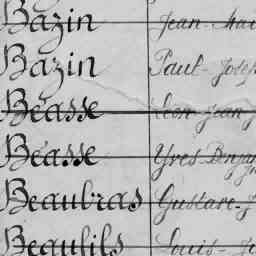 Bazin Jean-
Bazin Paul-
Béasse Léon-Jean-
Béasse Yves-
Beaubras Gustave-
Beaufils Louis-